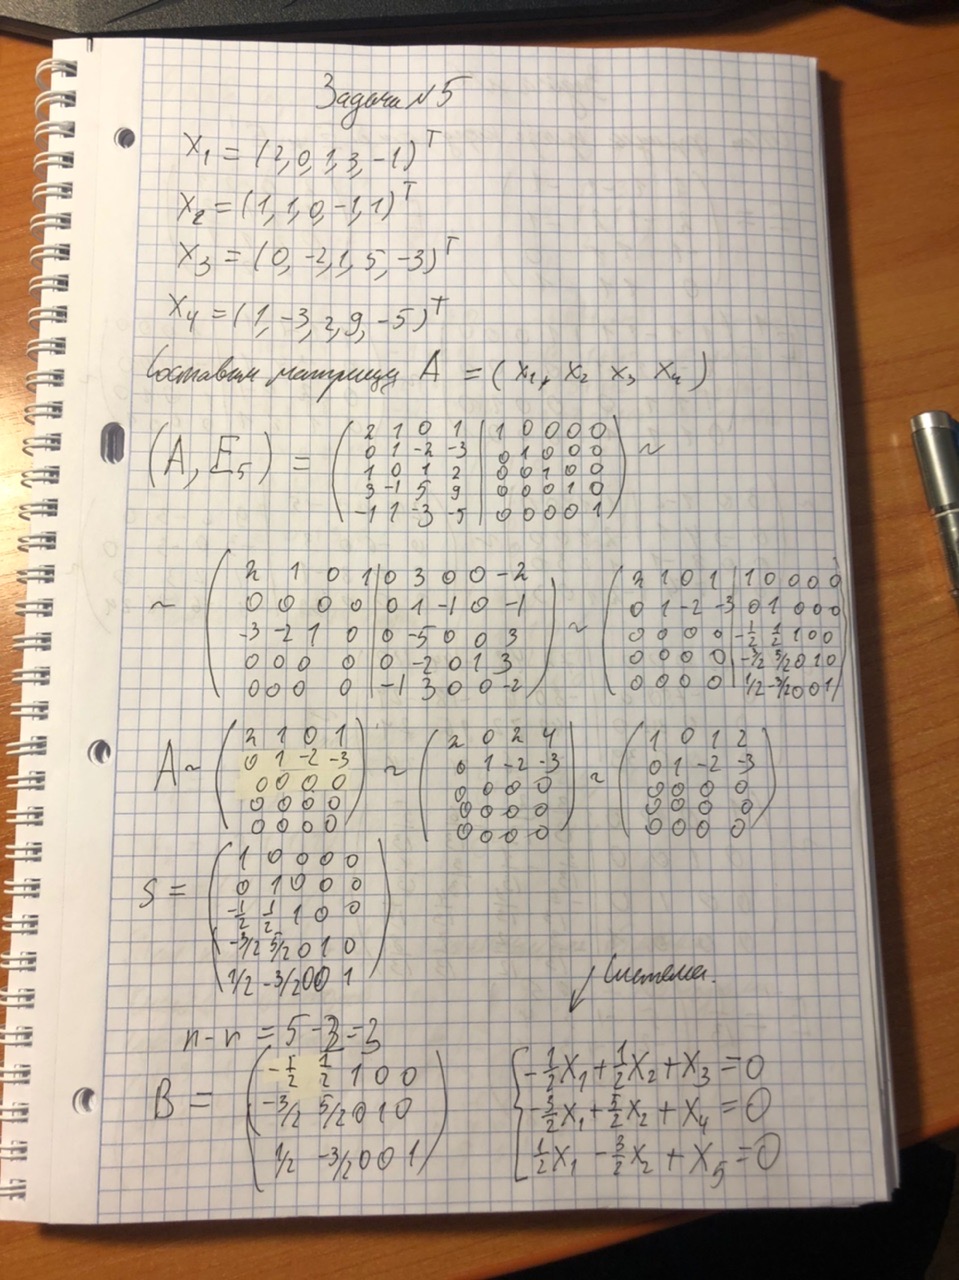 Задача N5
X₁ = (2, 0, 1, 3, -1)ᵀ
X₂ = (1, 1, 0, -1, 1)ᵀ
X₃ = (0, -2, 1, 5, -3)ᵀ
X₄ = (1, -3, 2, 9, -5)ᵀ
Составим матрицу A = (X₁, X₂ X₃ X₄)
(A, E₅) = ~
2 1 0 1 | 1 0 0 0 0
0 1 -2 -3 | 0 1 0 0 0
1 0 1 2 | 0 0 1 0 0
3 -1 5 9 | 0 0 0 1 0
-1 1 -3 -5 | 0 0 0 0 1
~
2 1 0 1 | 0 3 0 0 -2
0 0 0 0 | 0 1 -1 0 -1
-3 -2 1 0 | 0 -5 0 0 3
0 0 0 0 | 0 -2 0 1 3
0 0 0 0 | -1 3 0 0 -2
~
2 1 0 1 | 1 0 0 0 0
0 1 -2 -3 | 0 1 0 0 0
0 0 0 0 | -1/2 1/2 1 0 0
0 0 0 0 | -3/2 5/2 0 1 0
0 0 0 0 | 1/2 -3/2 0 0 1
A ~
2 1 0 1
0 1 -2 -3
0 0 0 0
0 0 0 0
0 0 0 0
~
2 0 2 4
0 1 -2 -3
0 0 0 0
0 0 0 0
0 0 0 0
~
1 0 1 2
0 1 -2 -3
0 0 0 0
0 0 0 0
0 0 0 0
S =
1 0 0 0 0
0 1 0 0 0
-1/2 1/2 1 0 0
-3/2 5/2 0 1 0
1/2 -3/2 0 0 1
n - r = 5 - 2 = 3
B =
-1/2 1/2 1 0 0
-3/2 5/2 0 1 0
1/2 -3/2 0 0 1
Система.
-1/2 X₁ + 1/2 X₂ + X₃ = 0
-3/2 X₁ + 5/2 X₂ + X₄ = 0
1/2 X₁ - 3/2 X₂ + X₅ = 0